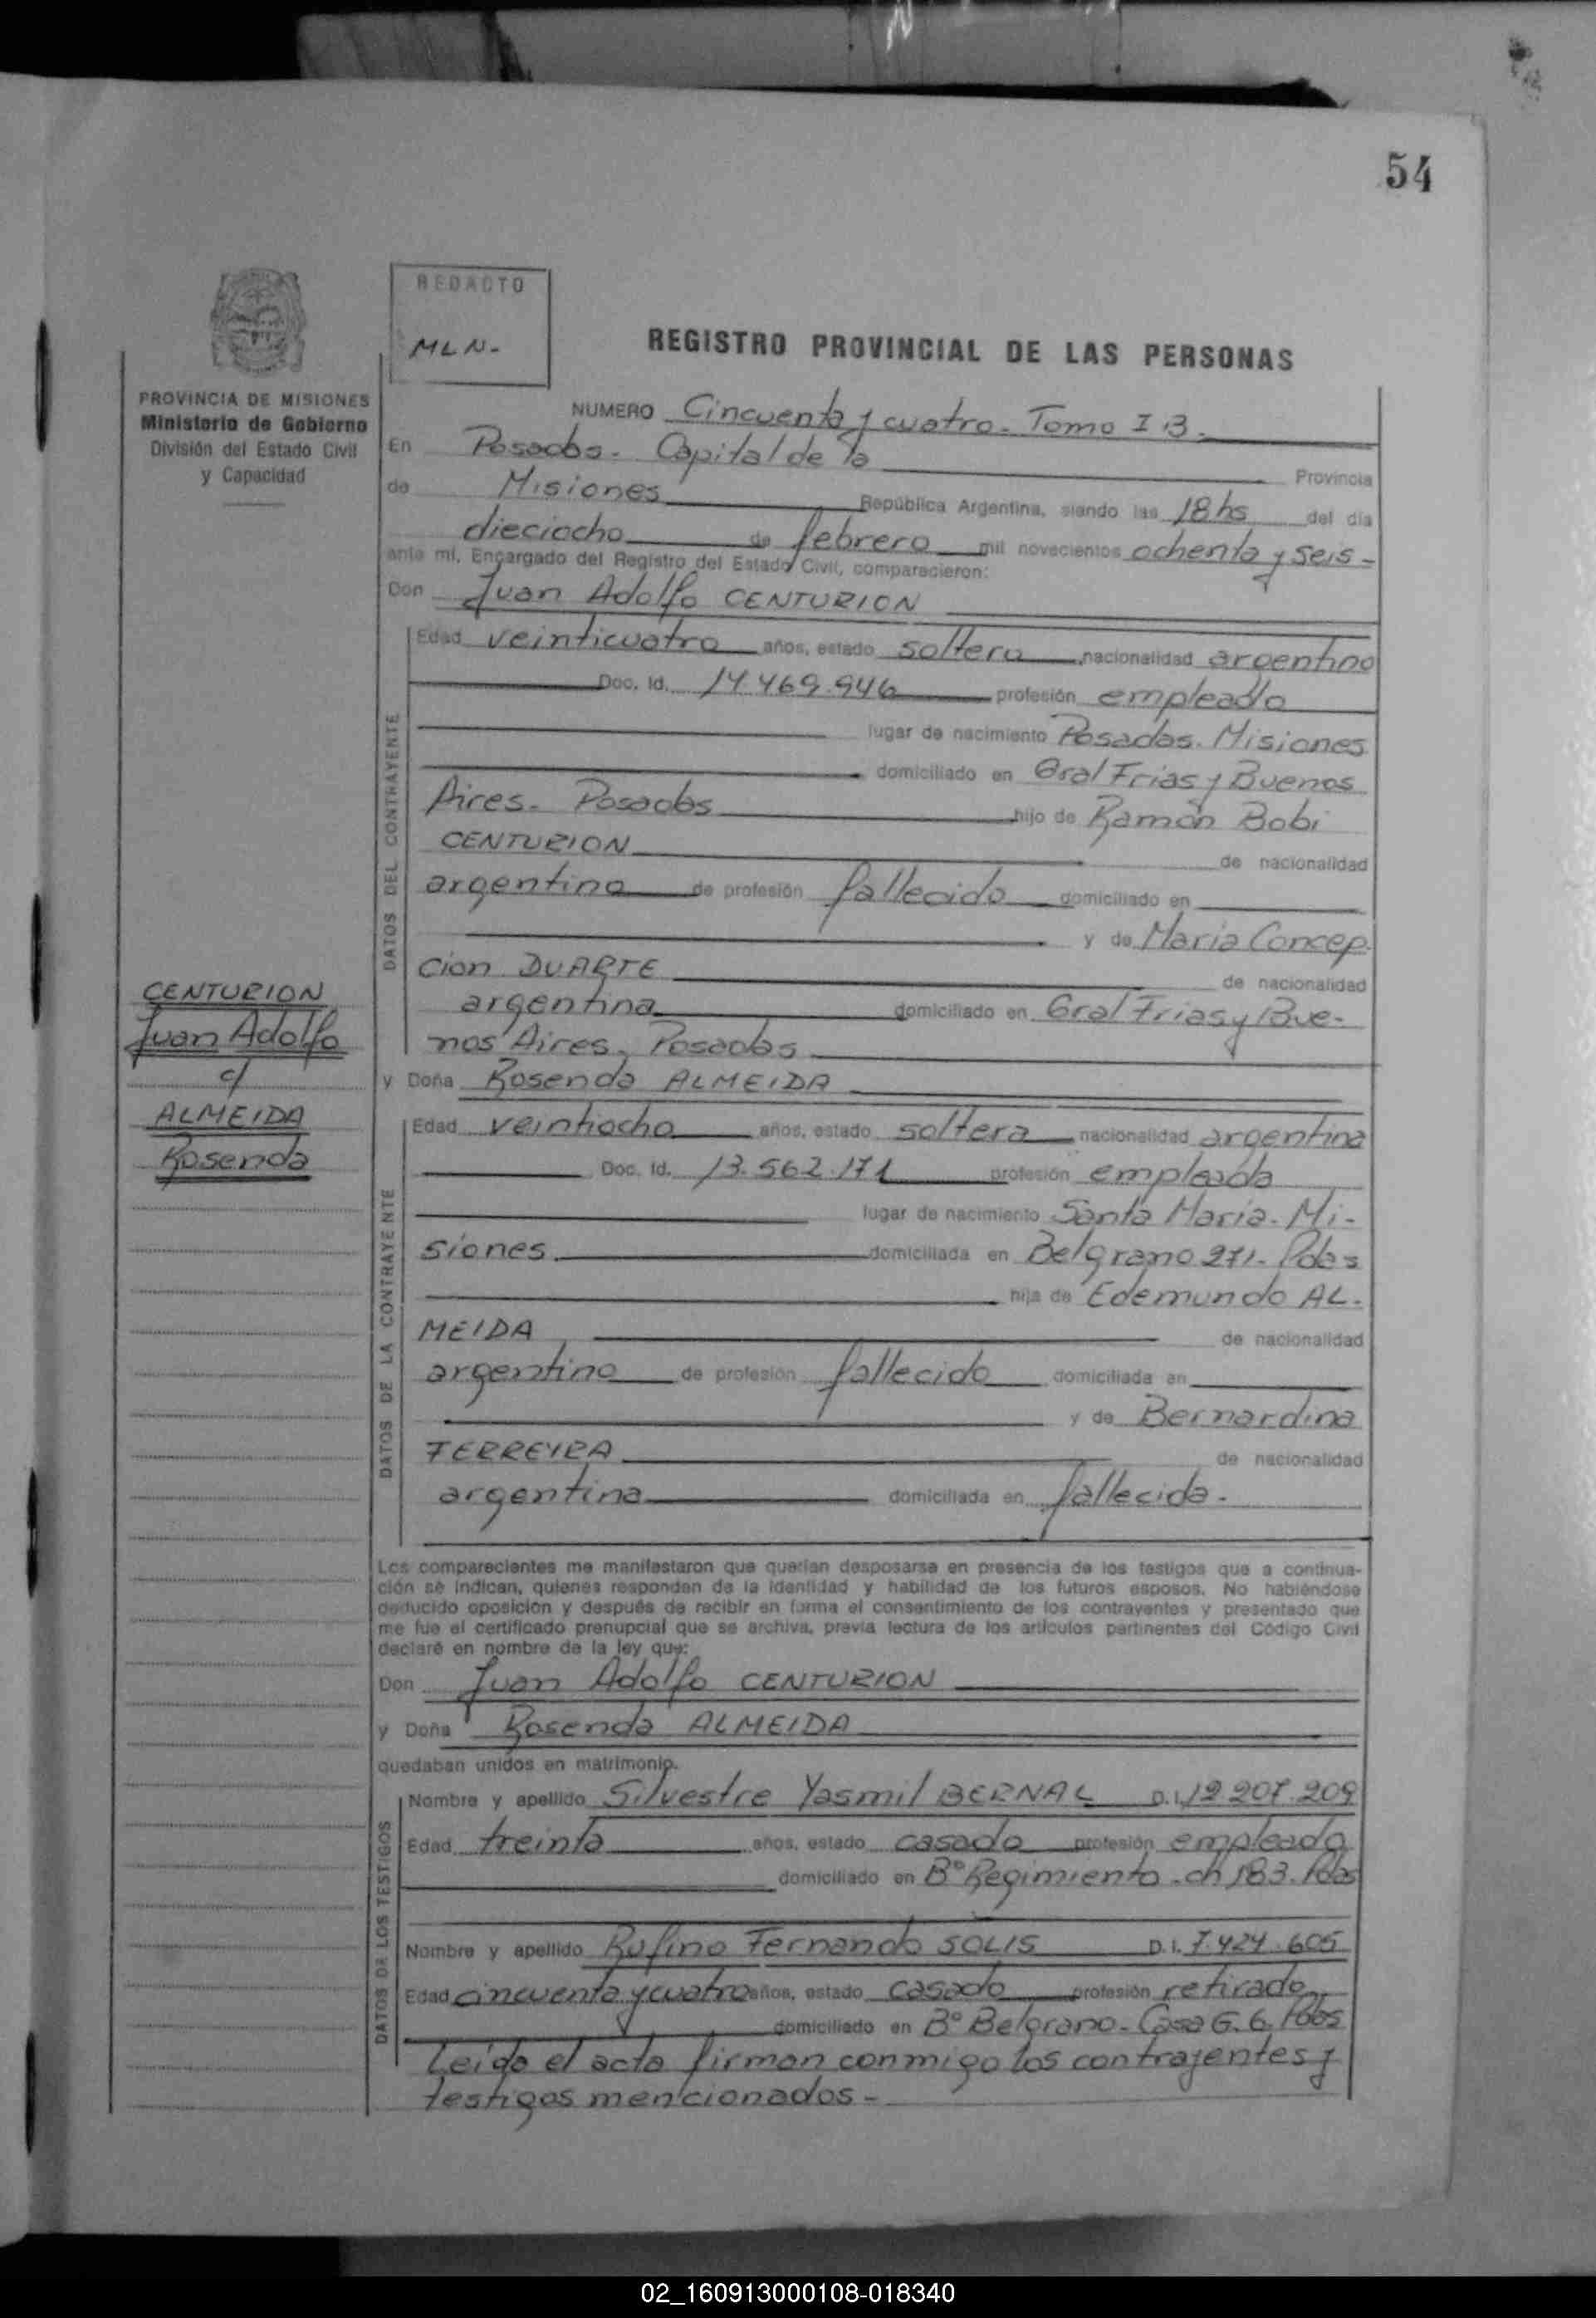 54
REDACTO
MLN-
REGISTRO PROVINCIAL DE LAS PERSONAS
PROVINCIA DE MISIONES
Ministerio de Gobierno
División del Estado Civil
y Capacidad
NUMERO Cincuenta y cuatro - Tomo I B.
En Posadas - Capital de la Provincia
de Misiones República Argentina, siendo las 18 hs del día
dieciocho de febrero mil novecientos ochenta y seis -
ante mí, Encargado del Registro del Estado Civil, comparecieron:
Don Juan Adolfo CENTURION
DATOS DEL CONTRAYENTE
Edad veinticuatro años, estado soltero nacionalidad argentino
Doc. Id. 14.469.946 profesión empleado
lugar de nacimiento Posadas. Misiones
domiciliado en Gral Frias y Buenos
Aires - Posadas hijo de Ramón Bobi
CENTURION de nacionalidad
argentino de profesión fallecido domiciliado en
y de Maria Concep
cion DUARTE de nacionalidad
argentina domiciliado en Gral Frias y Bue-
nos Aires. Posadas
CENTURION
Juan Adolfo
c/
ALMEIDA
Rosenda
y Doña Rosenda ALMEIDA
DATOS DE LA CONTRAYENTE
Edad veintiocho años, estado soltera nacionalidad argentina
Doc. Id. 13.562.171 profesión empleada
lugar de nacimiento Santa Maria - Mi-
siones domiciliada en Belgrano 271 - Pdas
hija de Edemundo AL-
MEIDA de nacionalidad
argentino de profesión fallecido domiciliada en
y de Bernardina
FERREYRA de nacionalidad
argentina domiciliada en fallecida -
Los comparecientes me manifestaron que querían desposarse en presencia de los testigos que a continua-
ción se indican, quienes responden de la identidad y habilidad de los futuros esposos. No habiéndose
deducido oposición y después de recibir en forma el consentimiento de los contrayentes y presentado que
me fue el certificado prenupcial que se archiva, previa lectura de los artículos pertinentes del Código Civil
declaré en nombre de la ley que:
Don Juan Adolfo CENTURION
y Doña Rosenda ALMEIDA
quedaban unidos en matrimonio.
DATOS DE LOS TESTIGOS
Nombre y apellido Silvestre Yasmil BERNAL D.I. 12.207.209
Edad treinta años, estado casado profesión empleado
domiciliado en B° Regimiento - ch 183. Pdas
Nombre y apellido Rufino Fernando SOLIS D.I. 7.424.605
Edad cincuenta y cuatro años, estado casado profesión retirado
domiciliado en B° Belgrano - Casa G. 6. Pdas
Leida el acta firman conmigo los contrayentes y
testigos mencionados -
02_160913000108-018340